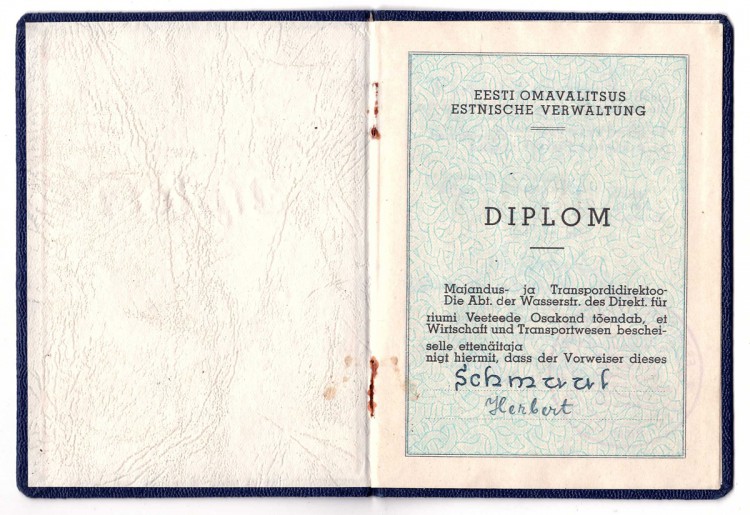 EESTI OMAVALITSUS
ESTNISCHE VERWALTUNG
DIPLOM
Majandus- ja Transpordidirektoo-
Die Abt. der Wasserstr. des Direkt. für
riumi Veeteede Osakond tõendab, et
Wirtschaft und Transportwesen beschei-
selle ettenäitaja
nigt hiermit, dass der Vorweiser dieses
Schmaal
Herbert